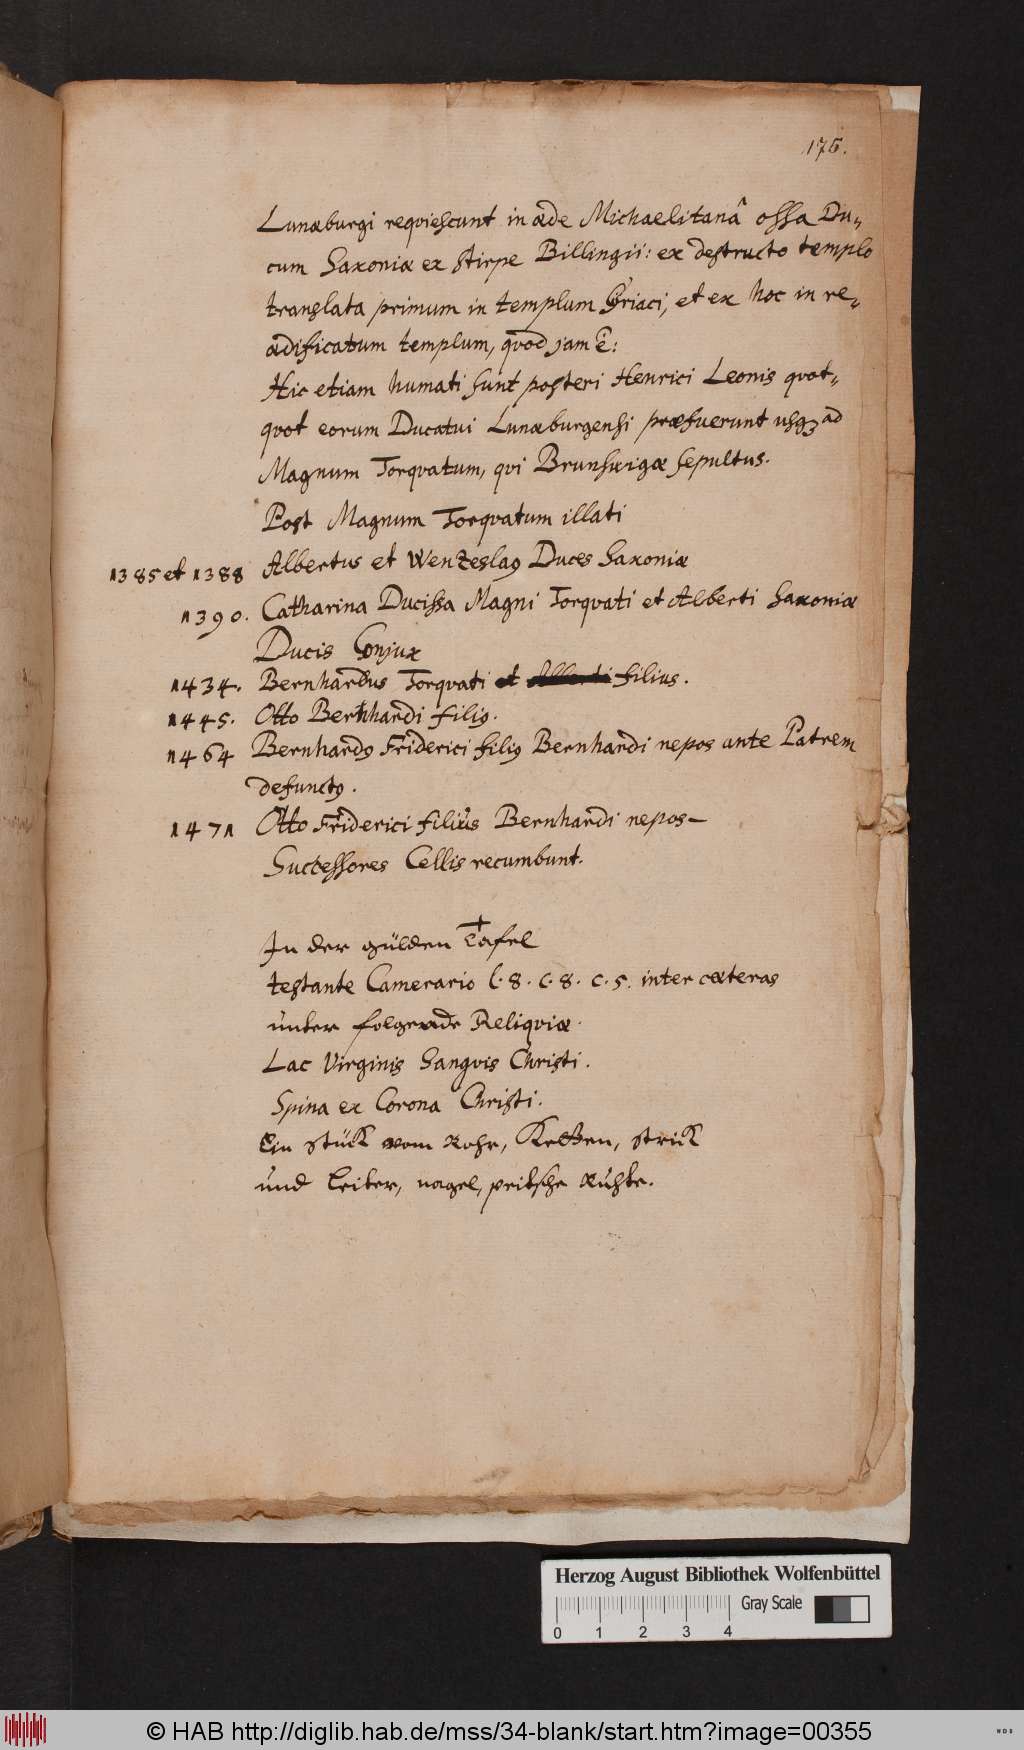 176.
Lunæburgi requiescunt in æde Michaelitanâ ossa Du„
cum Saxoniæ ex stirpe Billingii: ex destructo templo
translata primum in templum Cyriaci, et ex hoc in re„
ædificatum templum, quod jam ē:
Hic etiam humati sunt posteri Henrici Leonis quot„
quot eorum Ducatui Lunæburgensi præfuerunt usqꝫ ad
Magnum Torquatum, qui Brunsvigæ sepultus.
Post Magnum Torquatum illati
1385 et 1388 Albertus et Wenzeslaꝰ Duces Saxoniæ
1390. Catharina Ducissa Magni Torquati et Alberti Saxoniæ
Ducis Conjux
1434. Bernhardus Torquati et Alberti filius.
1445. Otto Bernhardi filiꝰ.
1464 Bernhardꝰ Friderici filiꝰ Bernhardi nepos ante Patrem
defunctꝰ.
1471 Otto Friderici filius Bernhardi nepos –
Successores Cellis recumbunt.
In der gülden Tafel
testante Camerario l. 8. c. 8. c. 5. inter cæteras
unter folgende Reliquiæ.
Lac Virginis Sanguis Christi.
Spina ex Corona Christi.
Ein stück vom Rohr, Ketten, strick
und leiter, nagel, peitsche Ruhte.
Herzog August Bibliothek Wolfenbüttel
Gray Scale
0 1 2 3 4
© HAB http://diglib.hab.de/mss/34-blank/start.htm?image=00355